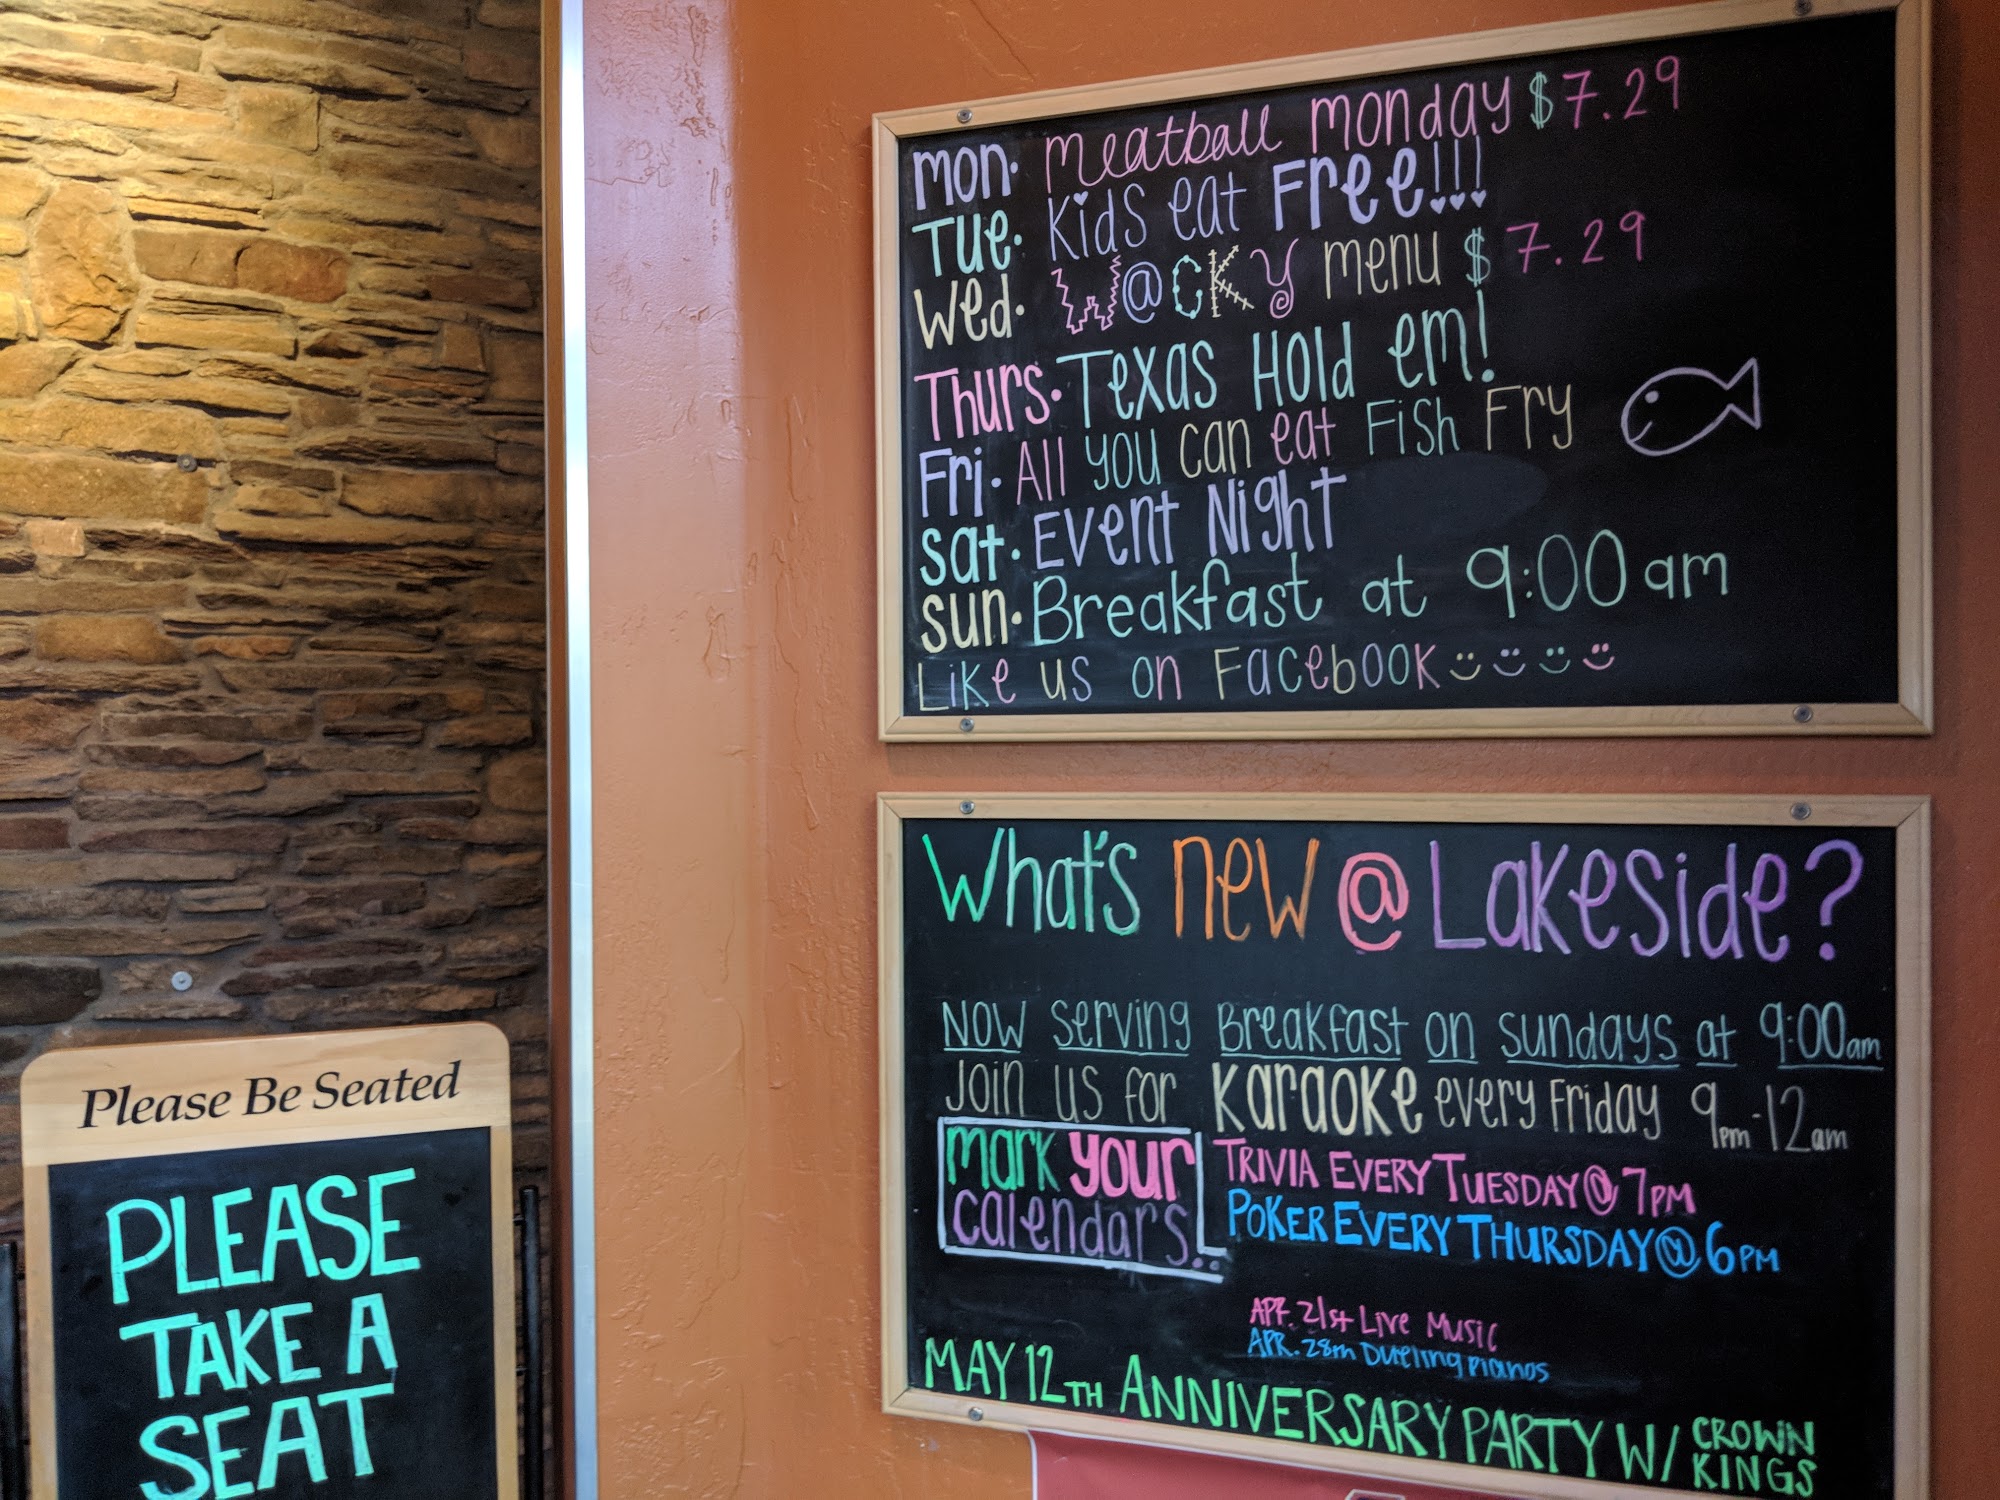 Mon. Meatball Monday $7.29
Tue. Kids eat Free!!!
Wed. W@cky menu $7.29
Thurs. Texas Hold em!
Fri. All you can eat Fish Fry
Sat. Event Night
Sun. Breakfast at 9:00 am
Like us on Facebook
What's new @ Lakeside?
Now serving Breakfast on Sundays at 9:00am
Join us for Karaoke every Friday 9pm-12am
Mark your
calendars..
TRIVIA EVERY TUESDAY @ 7PM
POKER EVERY THURSDAY @ 6PM
APR. 21st Live Music
APR. 28th Dueling Pianos
MAY 12TH ANNIVERSARY PARTY W/ CROWN
KINGS
Please Be Seated
PLEASE
TAKE A
SEAT